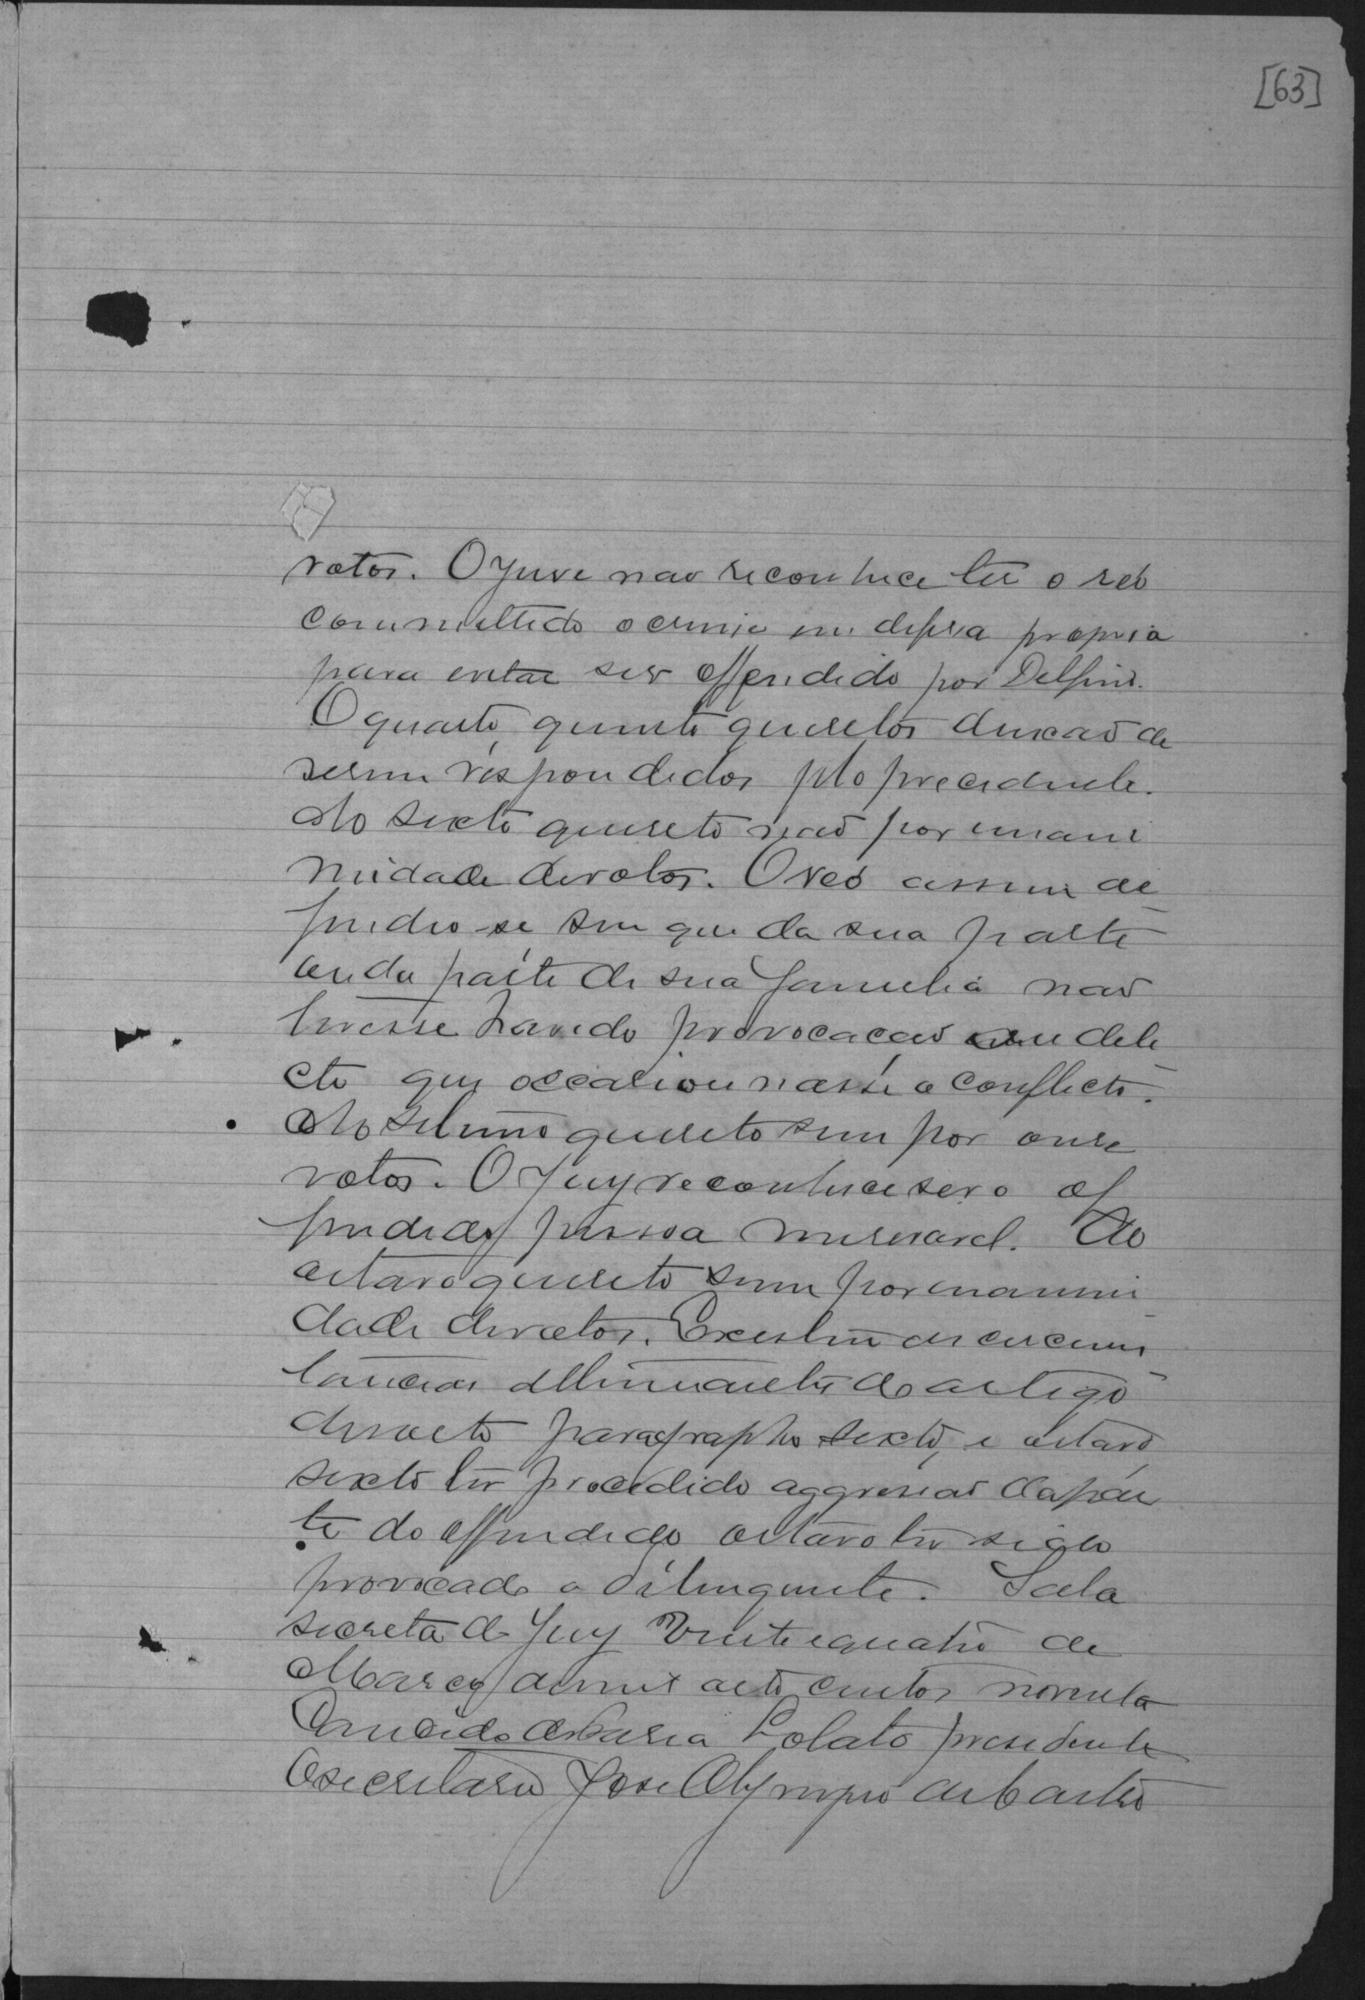 [63]
votos. O Jury nao reconhece ter o reó
commettido o crime em defesa propria
para evitar ser offendido por Delfino.
O quarto, quinto quesetos deixaõ de
serem respondidos pelo precedente.
Ao sexto queseto naõ por unani
midade de votos. O reó assim de
fendeo-se sem que da sua parte
ou da parte de sua familia naõ
tivesse havido provocaçaõ ou deli
cto que occasionasse o conflicto.
Ao setimo queseto sim por onse
votos. O Jury reconhece ser o of
fendido pessoa miseravel. Ao
oitavo queseto sim por unanimi
dade de votos. Existem as circums
tancias attenuantes do artigo
desoito paragrapho sexto, e oitavo,
sexto ter procedido aggressaõ da par
te do offendido oitavo ter sido
provocado o delinquente. Sala
secreta do Jury Vinte e quatro de
Março de mil oito centos noventa
Candido de Faria Lobato presidente
O secretario José Olympio de Castro